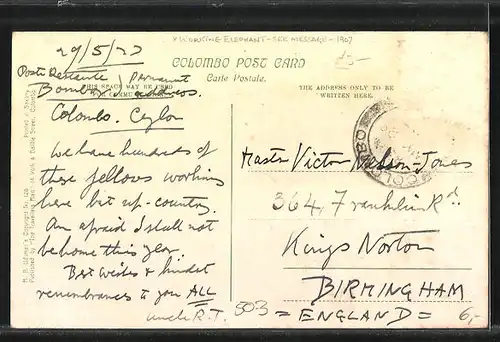 "WORKING ELEPHANT - SEE MESSAGE - 1907
COLOMBO POST CARD
Carte Postale.
THIS SPACE MAY BE USED
THE ADDRESS ONLY TO BE
WRITTEN HERE.
29/5/
Poste Restante
Bombay
Permanent
address.
Colombo. Ceylon
We have hundreds of
these fellows working
here but up-country.
Am afraid I shall not
be home this year.
Best wishes & kindest
remembrances to you ALL
uncle R.T.
503
Master Victor Nelson-Jones
364, Franklin Rd.
Kings Norton
BIRMINGHAM
= ENGLAND =
6,-